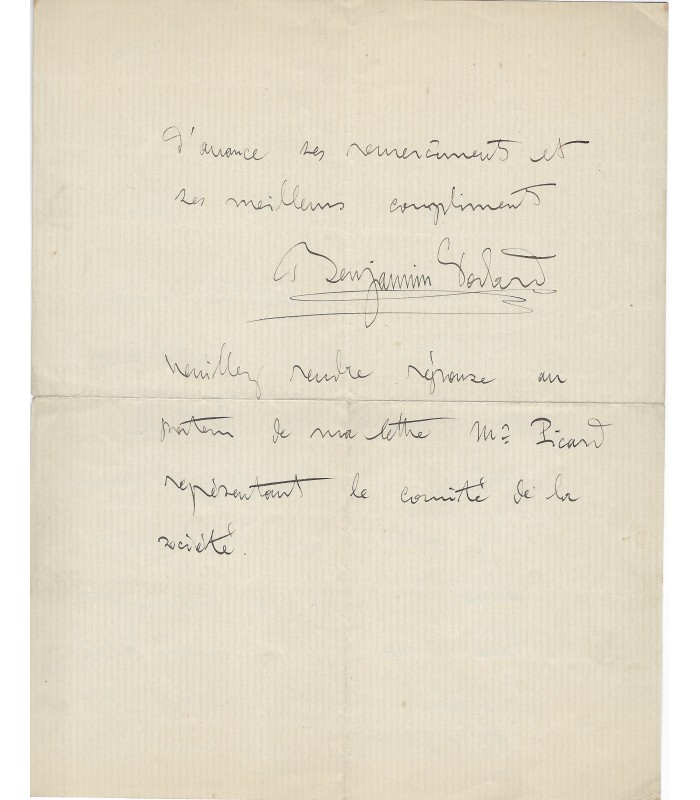 d'avance ses remerciments et
ses meilleurs compliments
Benjamin Godard
Veuillez rendre réponse au
porteur de ma lettre Mr Picard
représentant le comité de la
société.